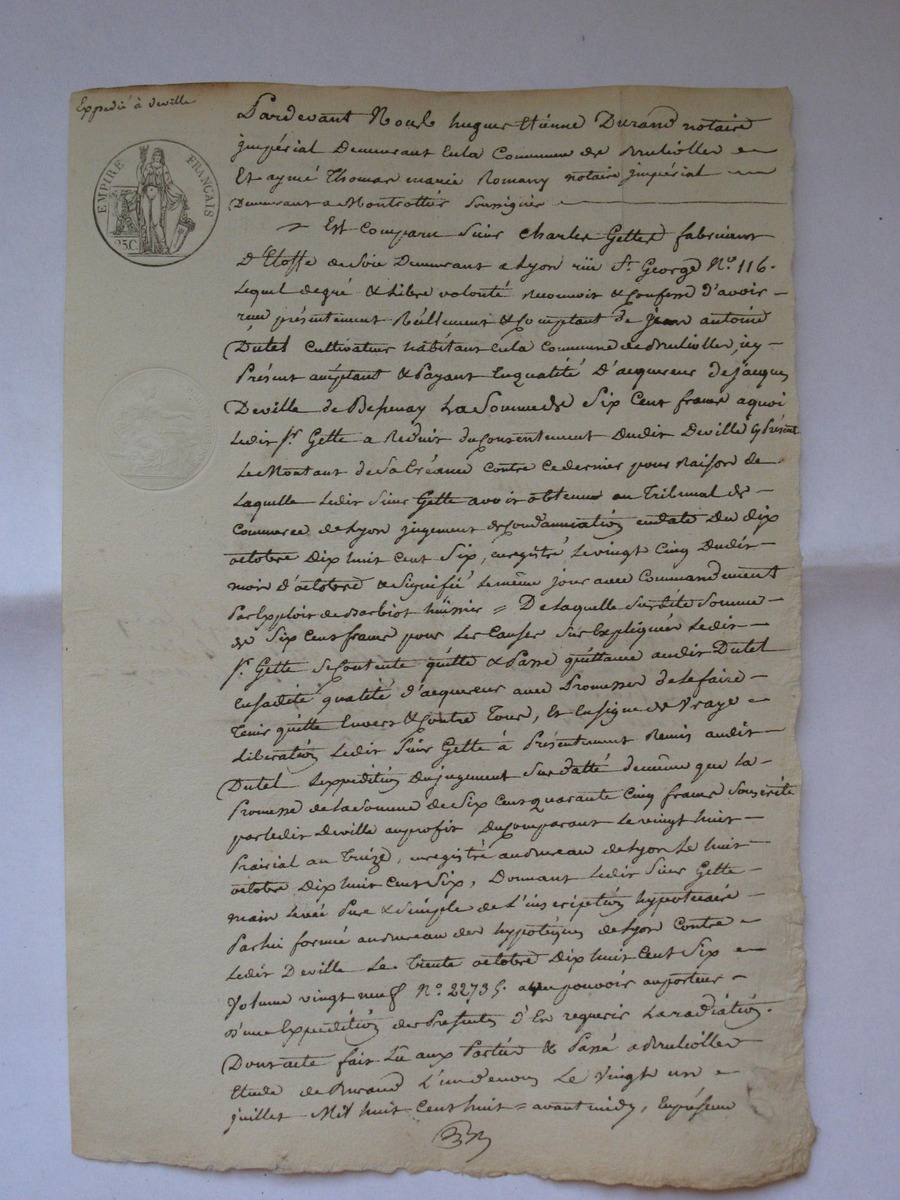 Expedié à Deville
EMPIRE FRANÇAIS
25C.
Pardevant Nous hugues Etienne Durand notaire
jmpérial Demeurant Enla Commune de Brulliolles
Et aymé Thomas marie Romany notaire jmpérial
Demeurant a Montrottier Soussignés
Est Comparu Sieur Charles Gette fabricant
D'Etoffe de Soie Demeurant a Lyon rüe St. George No. 116.
Lequel degré & Libre volonté Reconnoit & Confesse d'avoir
reçu présentement Réellement & Comptant de jean antoine
Dutel Cultivateur habitant Enla Commune de Brulliolles, icy
Présent acceptant & Payant Enqualité D'acquereur de jacques
Deville de Bessenay La Somme de Six Cent francs a quoi
Ledit Sr. Gette a Reduit du Consentement Dudit Deville cy Présent
Le Montant de Sa Créance Contre ce dernier pour Raison de
Laquelle Ledit Sieur Gette avoit obtenu au Tribunal de
Commerce de Lyon jugement de Condamnation endate Du dix
octobre Dix huit Cent Six, enregistré Le vingt Cinq Dudit
mois D'octobre & Signifié Le même jour avec Commandement
Par Exploit de Barbiot huissier = De laquelle Susdite Somme
de Six Cent francs pour Les Causes Sus Expliquées Ledit
Sr. Gette Se Contente quitte & Passe quittance audit Dutel
en sadite qualité d'acquereur avec Promesse de le faire
Tenir quitte Envers & Contre Tous, Et En signe de Vraye
Liberation Ledit Sieur Gette à Présentement Remis audit
Dutel L'expédition Dujugement Sus datté de même que La
Promesse de la Somme de Six Cent quarante Cinq francs Souscrite
par ledit Deville au profit Du Comparant Le vingt huit
Prairial an Treize, enregistré au Bureau de Lyon Le huit
octobre Dix huit Cent Six, Donnant Ledit Sieur Gette
main Levée Pure & Simple de L'inscription hypotecaire
Par lui formée au Bureau des hypotèques de Lyon Contre
Ledit Deville Le Trente octobre Dix huit Cent Six
Volume vingt neuf No. 22735. avec pouvoir au porteur
D'une Expedition des Presentes D'En requerir La radiation.
Dont acte fait Lû aux Parties & Passé a Brulliolles
Etude de Durand L'un de nous Le Vingt un
juillet Mil huit Cent huit = avant midy, En présence